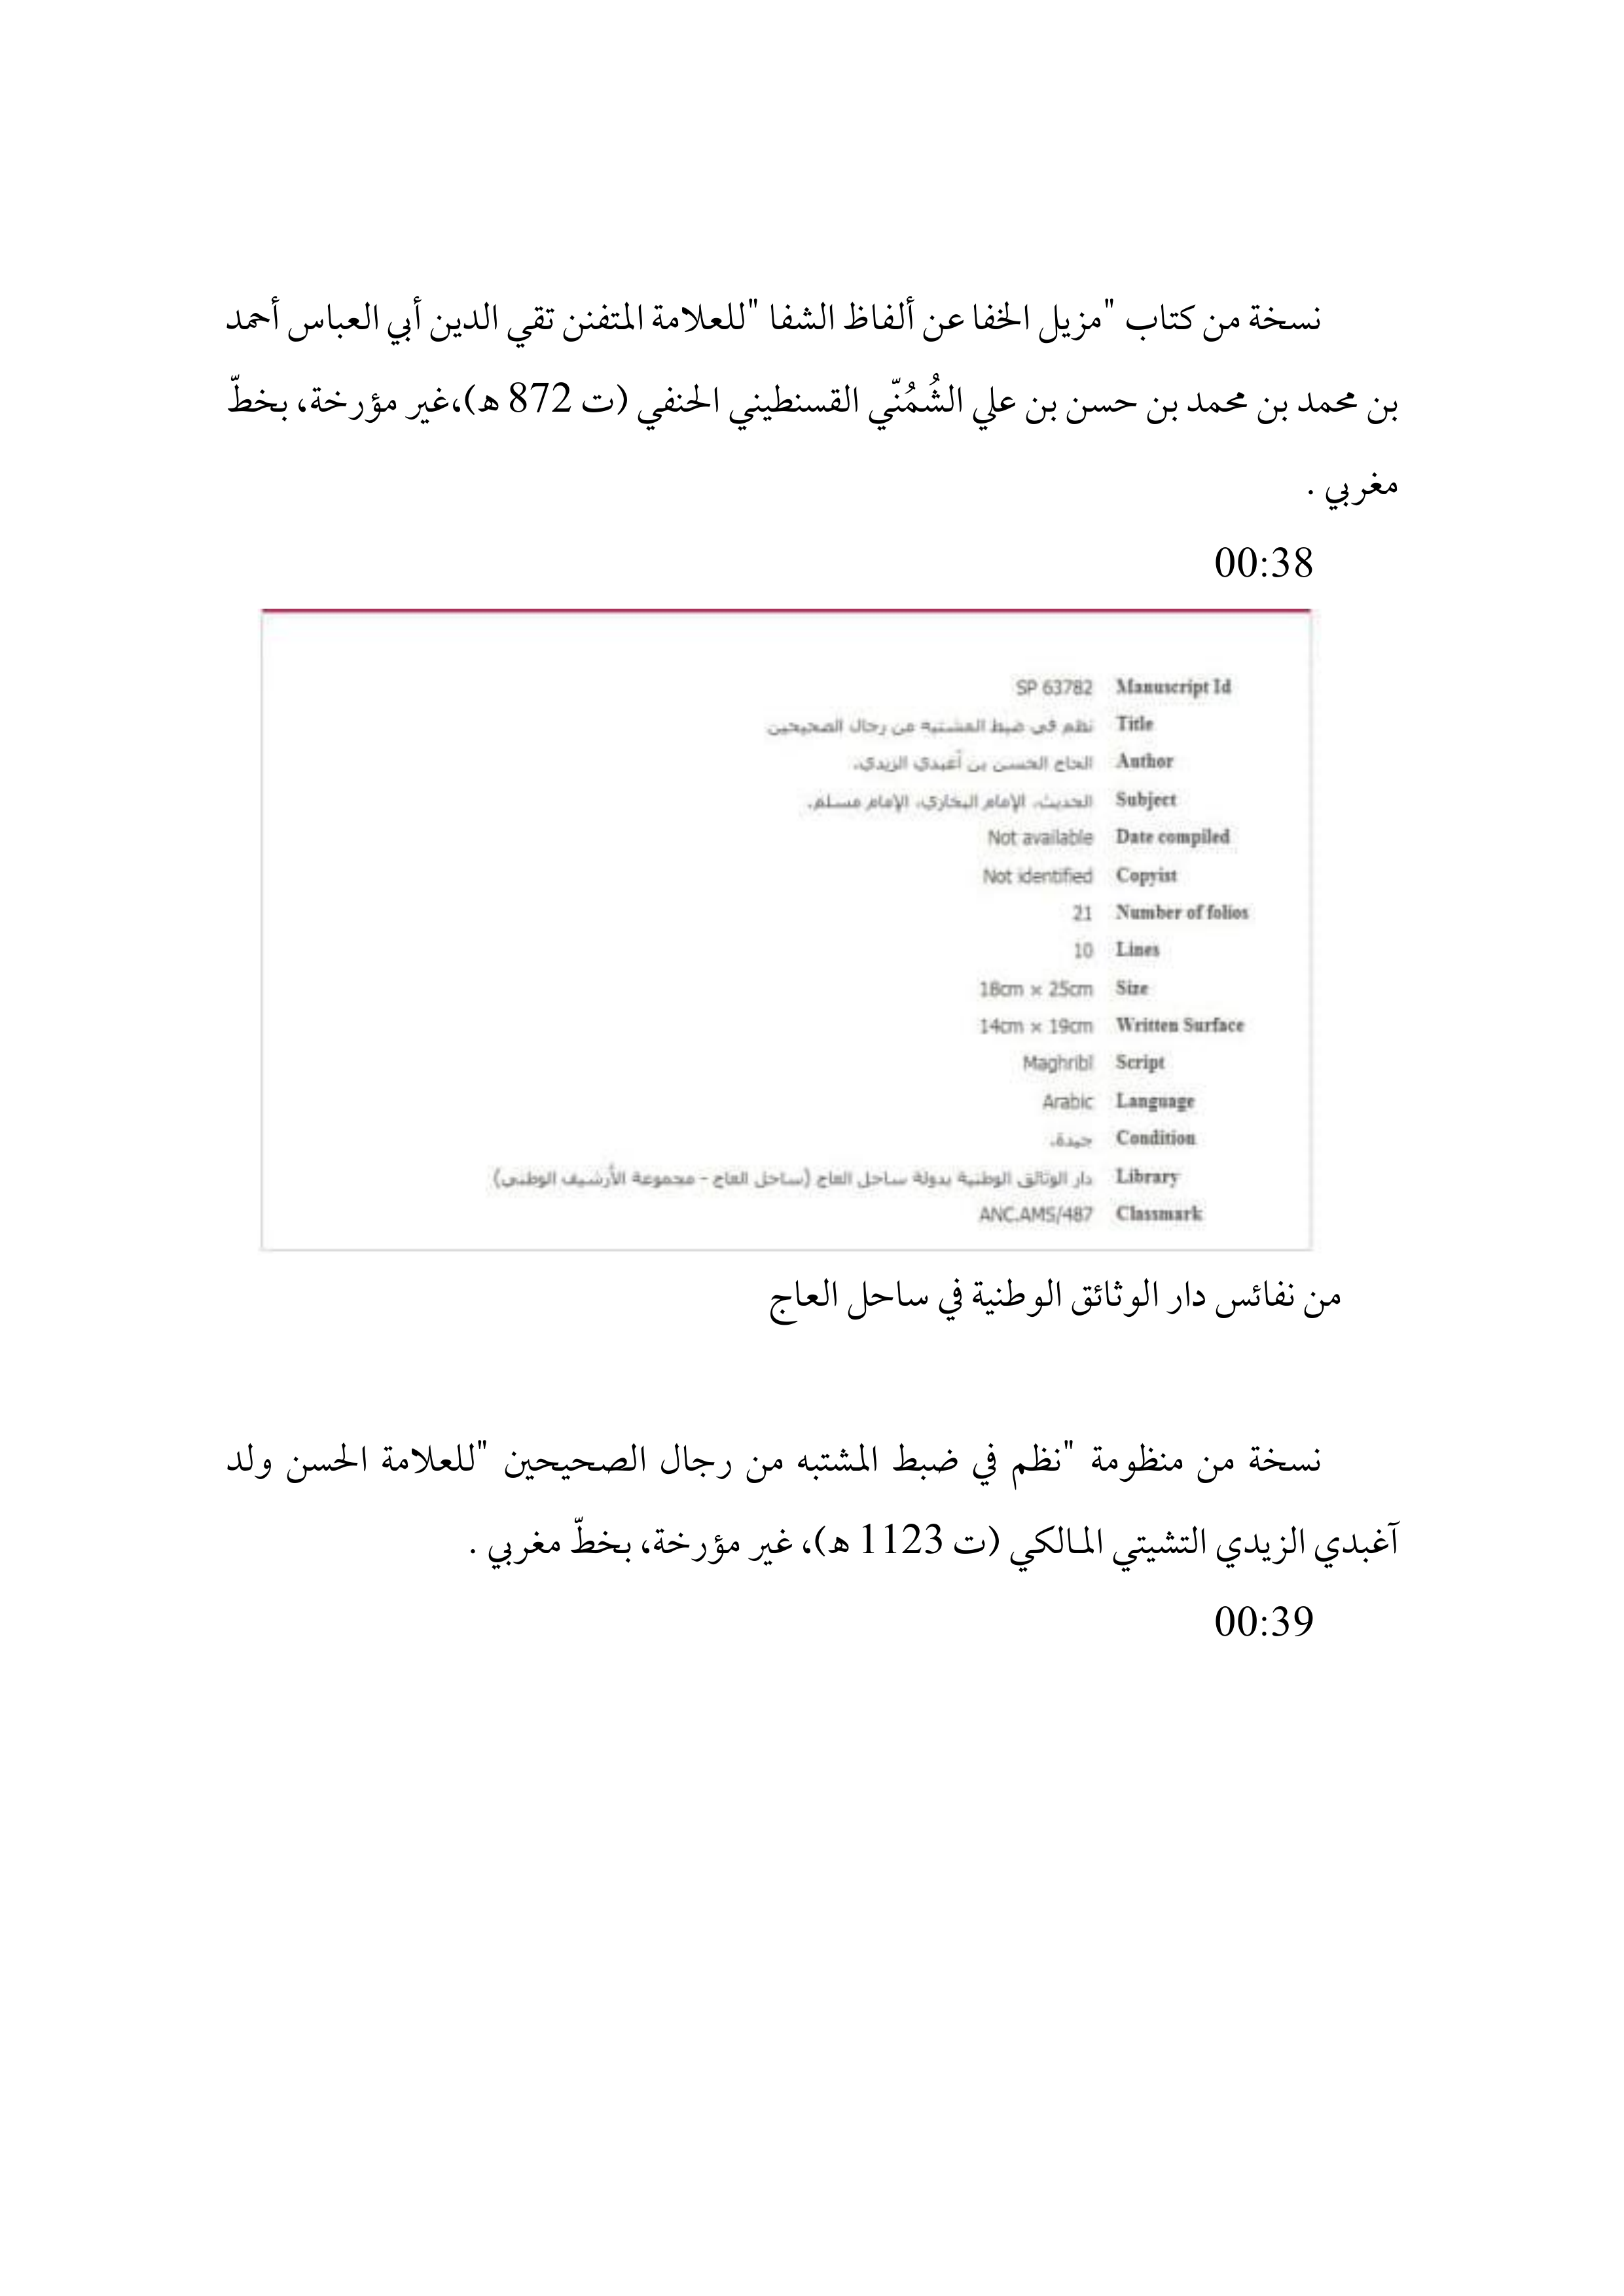 نسخة من كتاب "مزيل الخفا عن ألفاظ الشفا "للعلامة المتفنن تقي الدين أبي العباس أحمد
بن محمد بن محمد بن حسن بن علي الشُمُنّي القسنطيني الحنفي (ت 872 ه)،غير مؤرخة، بخطّ
مغربي .
00:38
SP 63782 Manuscript Id
نظم في ضبط المشتبه من رجال الصحيحين Title
الحاج الحسن بن أغبدي الزيدي. Author
الحديث، الإمام البخاري، الإمام مسلم. Subject
Not available Date compiled
Not identified Copyist
21 Number of folios
10 Lines
18cm × 25cm Size
14cm × 19cm Written Surface
Maghribī Script
Arabic Language
جيدة. Condition
دار الوثائق الوطنية بدولة ساحل العاج (ساحل العاج - مجموعة الأرشيف الوطني) Library
ANC.AMS/487 Classmark
من نفائس دار الوثائق الوطنية في ساحل العاج
نسخة من منظومة "نظم في ضبط المشتبه من رجال الصحيحين "للعلامة الحسن ولد
آغبدي الزيدي التشيتي المالكي (ت 1123 ه)، غير مؤرخة، بخطّ مغربي .
00:39